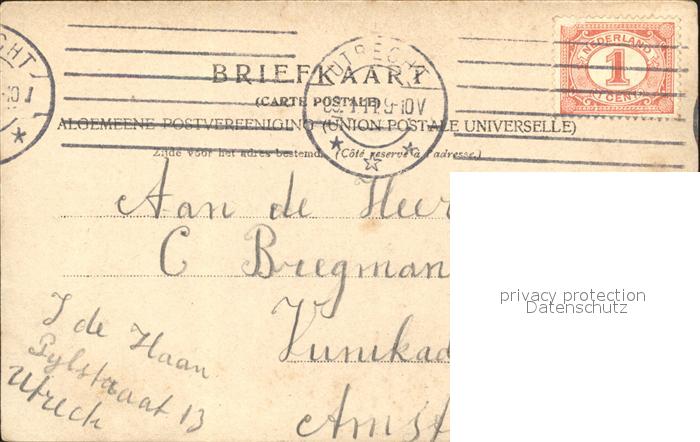 BRIEFKAART
(CARTE POSTALE)
ALGEMEENE POSTVEREENIGING (UNION POSTALE UNIVERSELLE)
Zijde voor het adres bestemd. (Côté réservé à l'adresse.)
UTRECHT
9-10V
NEDERLAND
1
1 CENT
Aan de Heer
C Bregman
Amst
J de Haan
Pylstraat 13
Utrech
privacy protection
Datenschutz